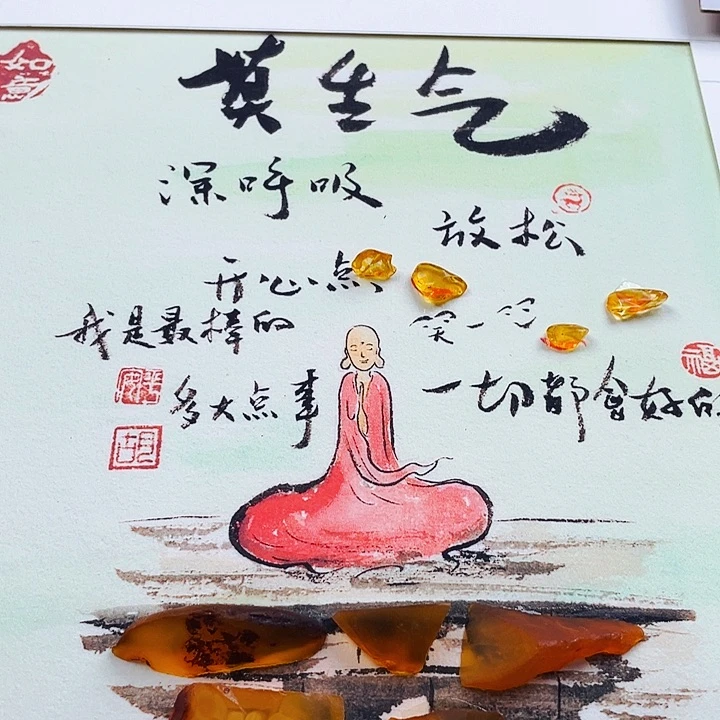 如意
莫生气
深呼吸
放松
开心点
笑一笑
我是最棒的
福
多大点事
一切都会好的